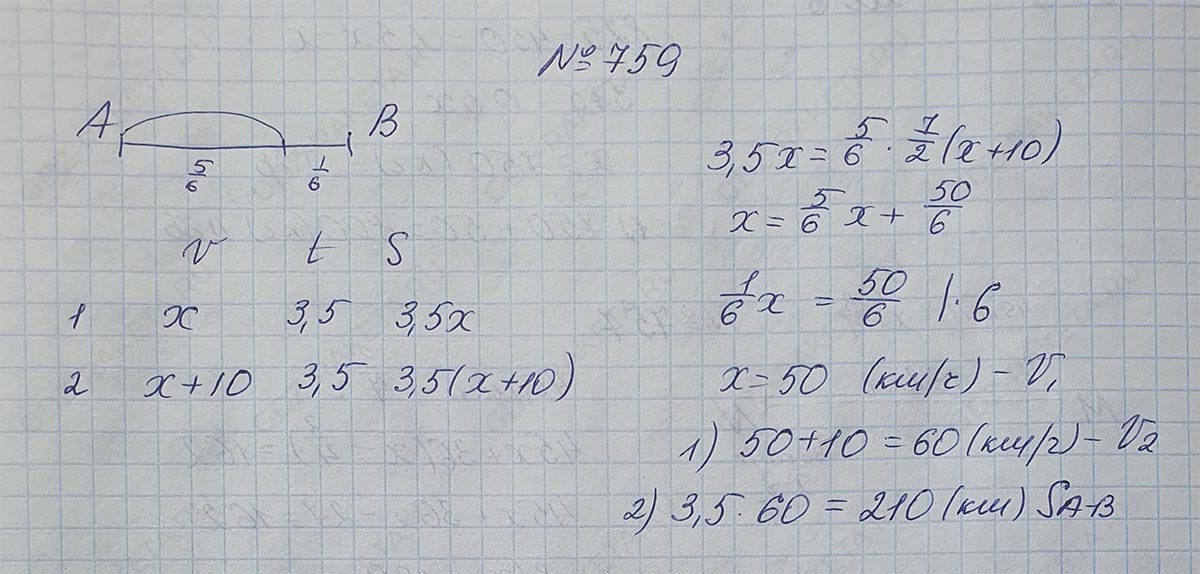 №759
A B
5/6 1/6
v t S
1 x 3,5 3,5x
2 x+10 3,5 3,5(x+10)
3,5x = 5/6 · 7/2 (x+10)
x = 5/6 x + 50/6
1/6 x = 50/6 |· 6
x = 50 (км/ч) – V₁
1) 50+10 = 60 (км/ч) – V₂
2) 3,5 · 60 = 210 (км) SAB